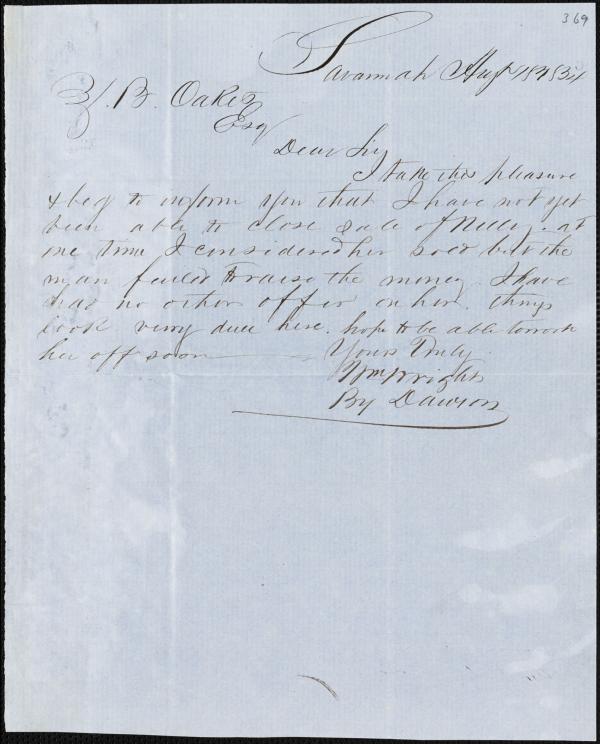 369
Savannah Augt 18th 1854
Z. B. Oakes
Esq
Dear Sir
I take this pleasure
& beg to inform you that I have not yet
been able to close sale of Nelly. at
one time I considered her sold but the
man failed to raise the money. I have
had no other offer on her. things
look very dull here. hope to be able to work
her off soon
Yours Truly
Wm Wright
By Dawson